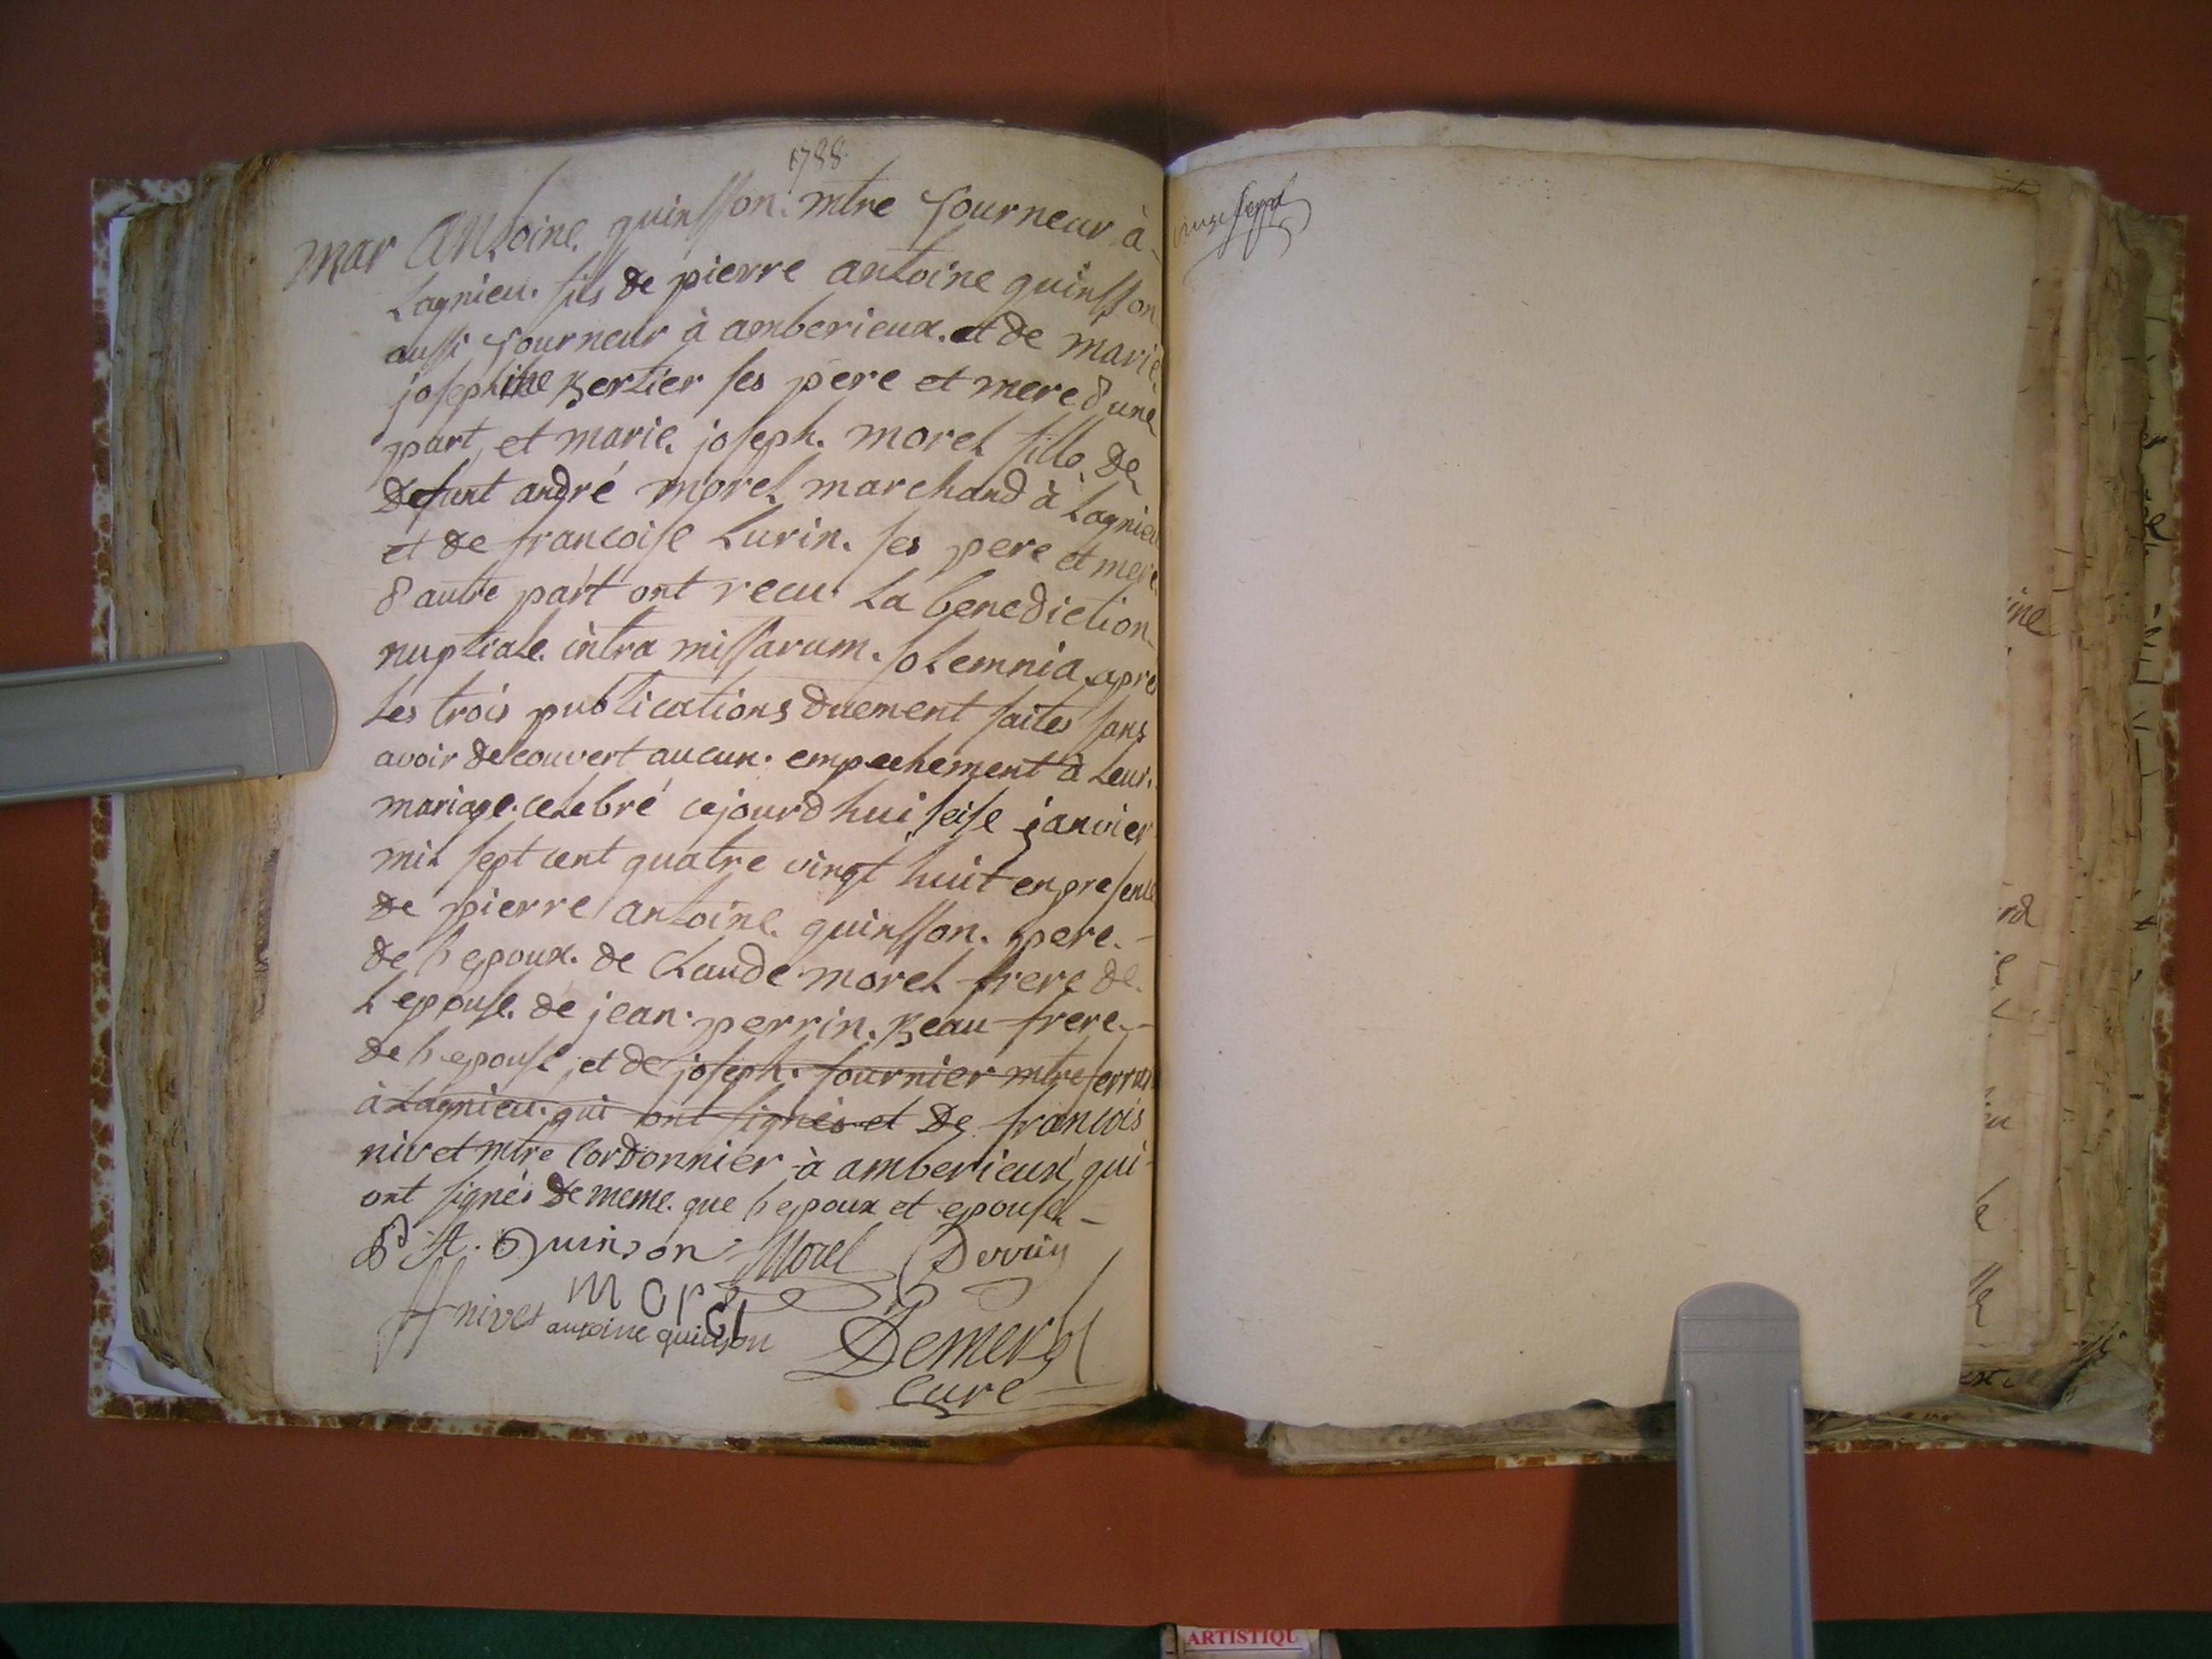 1788
mar Antoine quinsson mtre fourneur à
Lagnieu. fils de pierre antoine quinsson
aussi fourneur à amberieux. et de marie
josephine Bertier ses pere et mere d'une
part, et marie joseph. morel fille de
defunt andré morel marchand à Lagnieu
et de francoise Lurin. ses pere et mere
d'autre part ont recu La benediction
nuptiale intra missarum. solemnia apres
Les trois publications duement faites sans
avoir decouvert aucun. empechement à Leur.
mariage celebré cejourd'hui seise janvier
mil sept cent quatre vingt huit en presence
de pierre antoine quinsson. pere.
de L'epoux. de Claude morel frere de
L'epouse. de jean perrin. Beau frere.
de L'epouse, et de joseph. fournier mtre
à Lagnieu. qui ont signés et De francois
nivet mtre Cordonnier à amberieux qui
ont signés de meme. que L'epoux et epouse
P. A. Quinson Morel Perrin
morel
f nivet antoine quinson
cure
ARTISTIQU